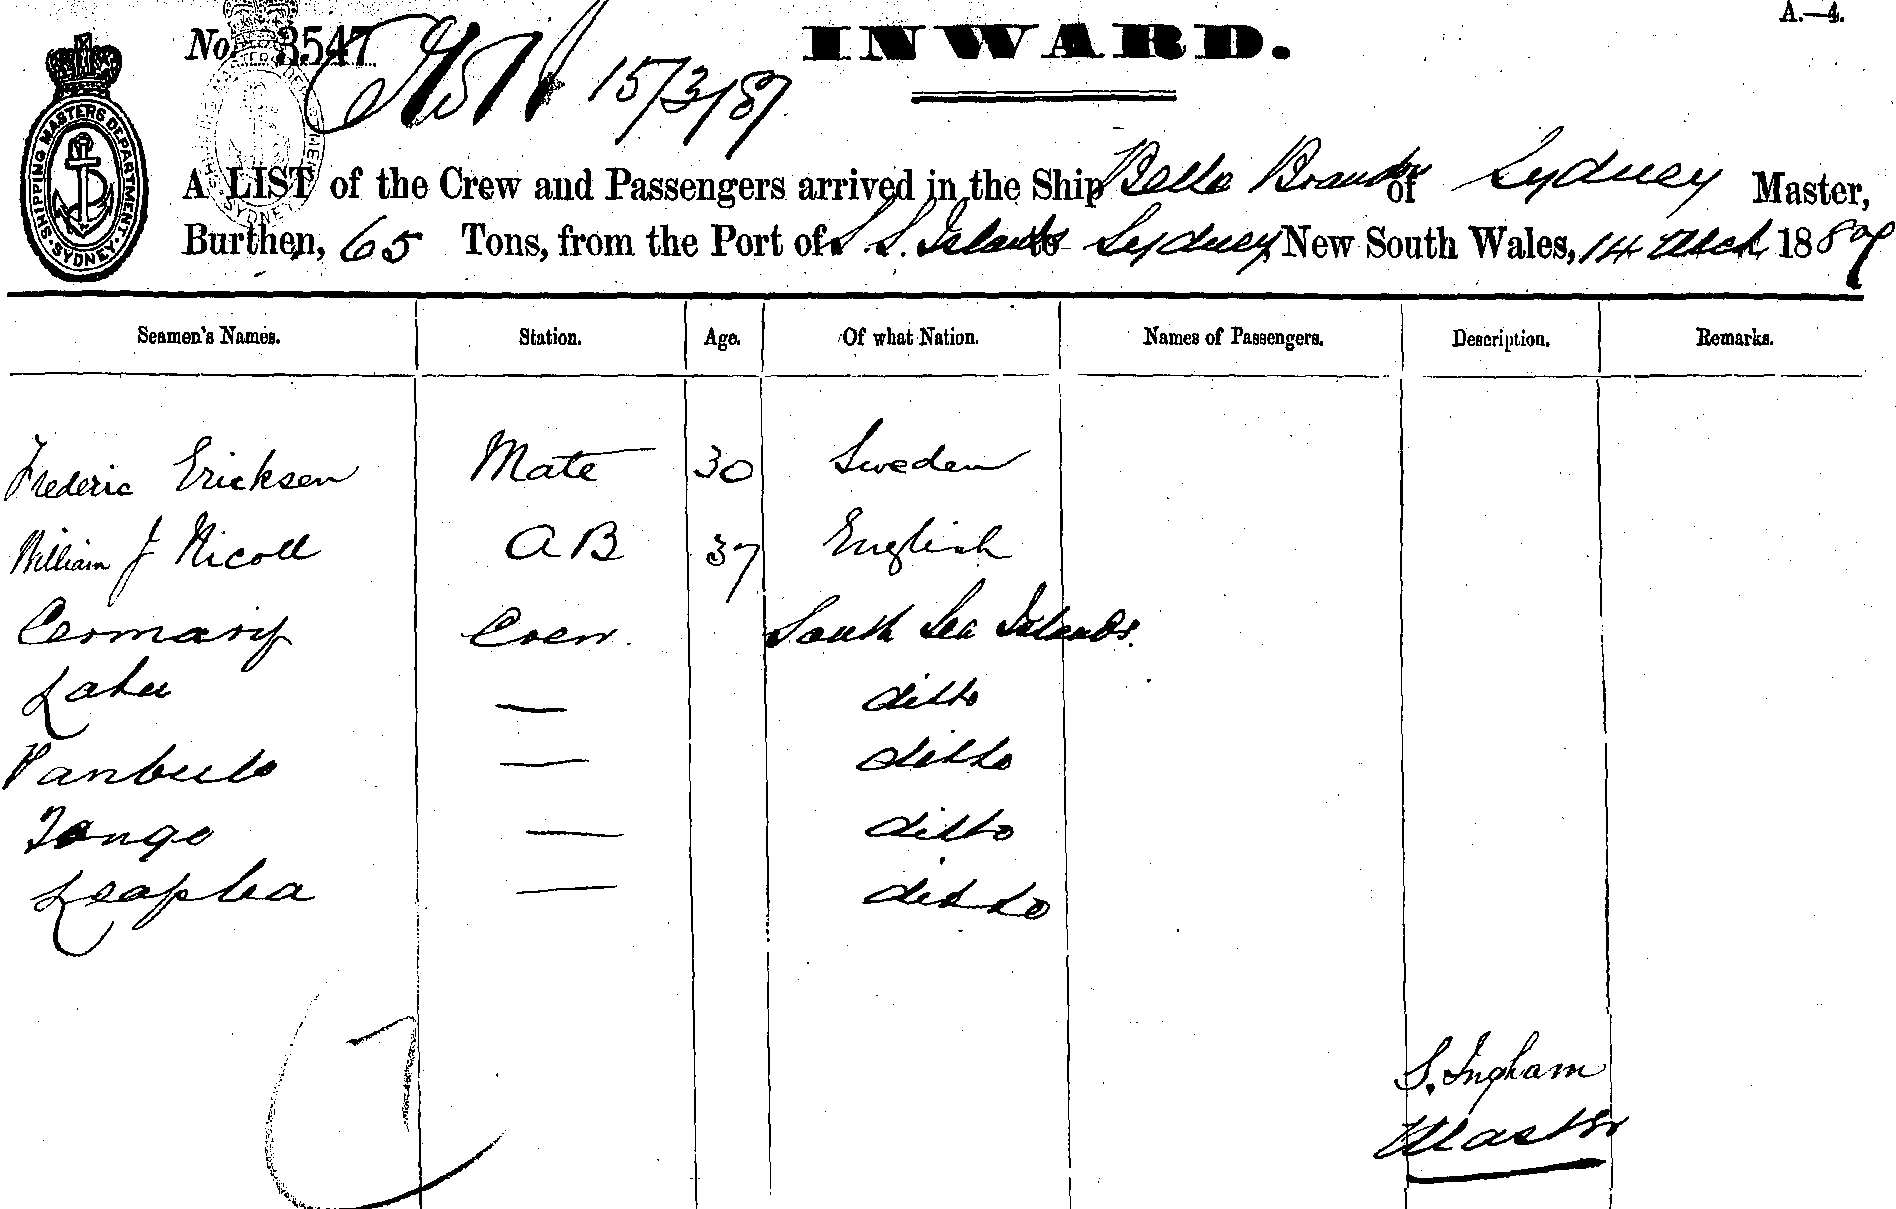 A.—4.
No. 3547
INWARD.
15/3/87
SHIPPING MASTERS DEPARTMENT SYDNEY
A LIST of the Crew and Passengers arrived in the Ship Bella of Sydney Master,
Burthen, 65 Tons, from the Port of S. S. Islands to Sydney New South Wales, 14 March 1887
Seamen's Names. Station. Age. Of what Nation. Names of Passengers. Description. Remarks.
Frederic Ericksen Mate 30 Sweden
William J Nicoll AB 37 English
Crew South Sea Islands.
— ditto
— ditto
Tongo — ditto
— ditto
7
S. Ingham
Master